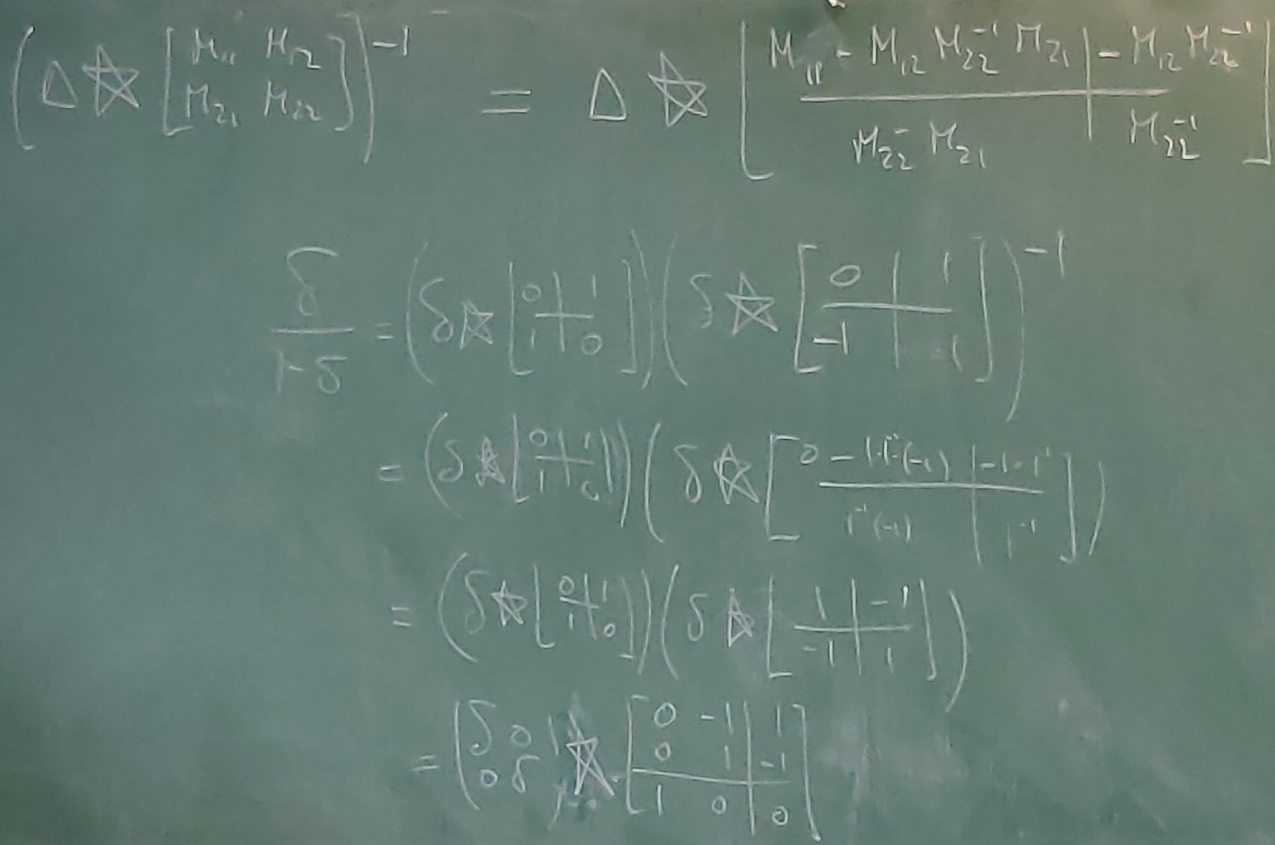 (Δ ☆ [M₁₁ M₁₂; M₂₁ M₂₂])⁻¹ = Δ ☆ [M₁₁ - M₁₂ M₂₂⁻¹ M₂₁ | - M₁₂ M₂₂⁻¹; M₂₂⁻ M₂₁ | M₂₂⁻¹]
δ/(1-δ) = (δ ☆ [0 | 1; 1 | 0]) (δ ☆ [0 | 1; -1 | 1])⁻¹
= (δ ☆ [0 | 1; 1 | 0]) (δ ☆ [0 - 1·1⁻¹·(-1) | -1·1⁻¹; 1⁻¹(-1) | 1⁻¹])
= (δ ☆ [0 | 1; 1 | 0]) (δ ☆ [1 | -1; -1 | 1])
= (δ 0; 0 δ) ☆ [0 -1 | 1; 0 1 | -1; 1 0 | 0]